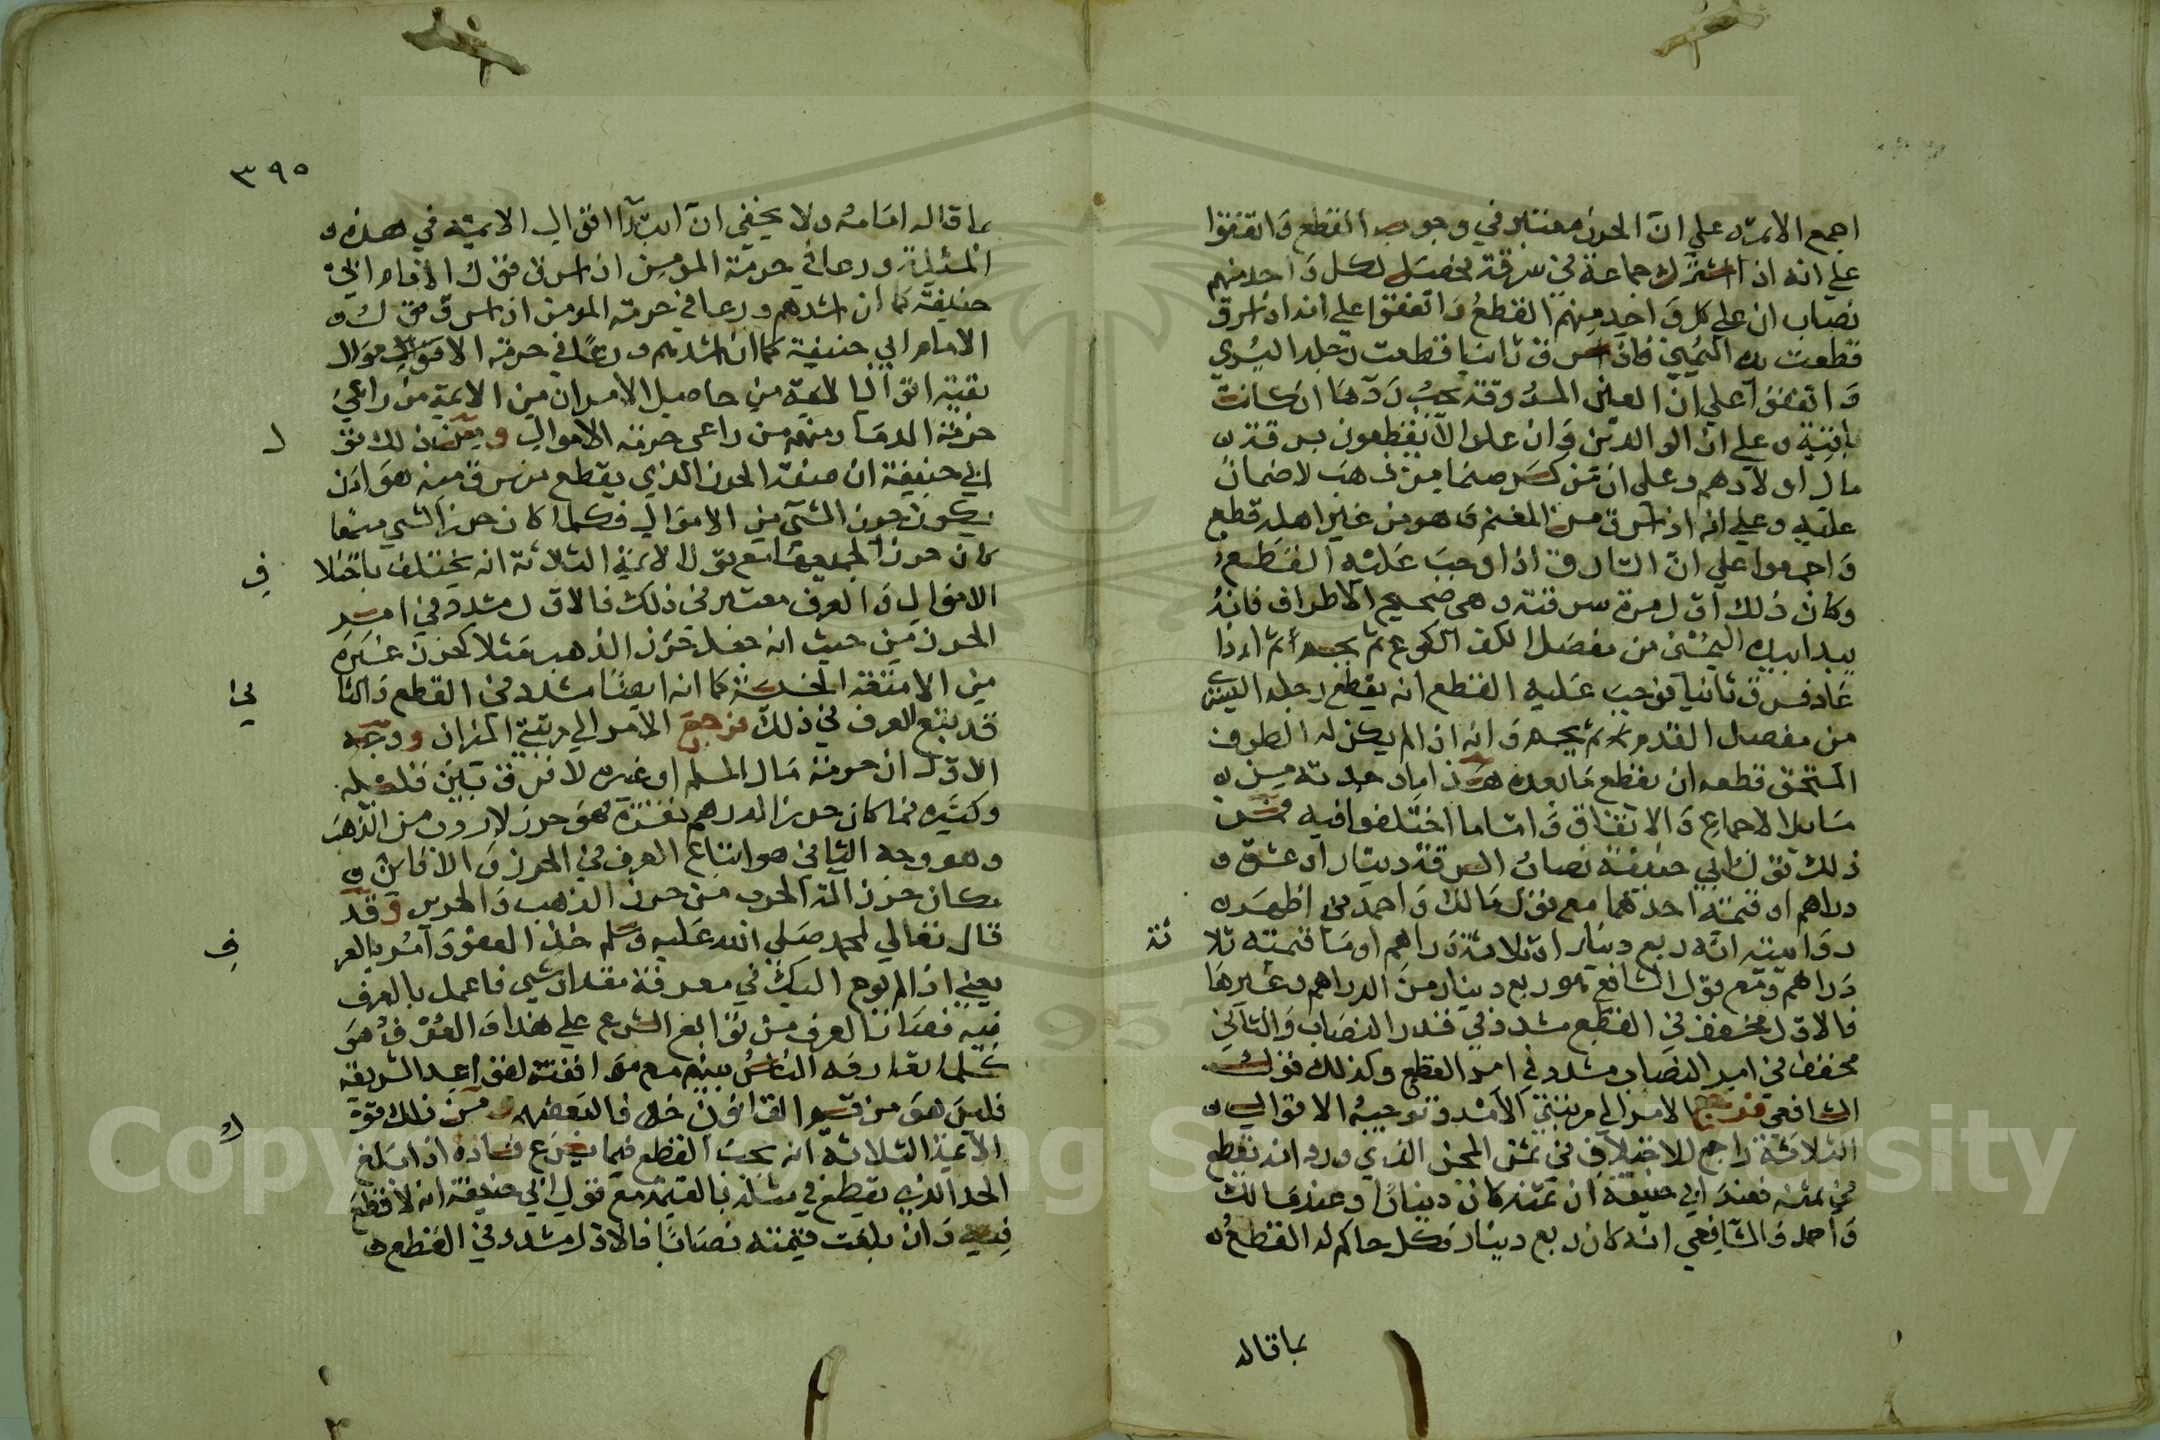 اجمع الائمة علي ان الحرز معتبر في وجوب القطع واتفقوا
علي انه اذا اشترك جماعة في سرقة فحصل لكل واحد منهم
نصاب ان علي كل واحد منهم القطع واتفقوا علي انه اذا سرق
قطعت يده اليمني فاذا سرق ثانيا قطعت رجله اليسري
واتفقوا علي ان العين المسروقة يجب ردها ان كانت
باقية وعلي ان الوالدين وان علوا لا يقطعون بسرقة
مال اولادهم وعلي ان من كسر صنما من ذهب لا ضمان
عليه وعلي انه اذا سرق من المغنم وهو من غير اهله قطع
واجمعوا علي ان السارق اذا وجب عليه القطع
وكان ذلك اول مرة سرقته وهي صحيح الاطراف فانه
يبدا بيده اليمني من مفصل الكف الكوع ثم يحسم ثم اذا
عاد فسرق ثانيا فوجب عليه القطع انه يقطع رجله اليسري
من مفصل القدم ثم يحسم وانه اذا لم يكن له الطرف
المستحق قطعه ان يقطع ما بعده هذا ما وجدته من
مسايل الاجماع والاتفاق واما ما اختلفوا فيه فمن
ذلك قول ابي حنيفة نصاب السرقة دينار او عشرة
دراهم او قيمة احدهما مع قول مالك واحمد في اظهر
روايتيه انه ربع دينار او ثلاثة دراهم او ما قيمته ثلا
ثة
دراهم ومع قول الشافعي هو ربع دينار من الدراهم وغيرها
فالاول مخفف في القطع مشدد في قدر النصاب والثاني
مخفف في امر النصاب مشدد في امر القطع وكذلك قول
الشافعي فرجع الامر الي مرتبتي الميزان وتوجيه الاقوال
الثلاثة راجع للاختلاف في ثمن المجن الذي ورد انه يقطع
في ثمنه فعند ابي حنيفة ان ثمنه كان دينارا وعند مالك
واحمد والشافعي انه كان ربع دينار فكل حاكم له القطع
بما قاله
٣٩٥
بما قاله امامه ولا يخفي ان اقوال الائمة في هذه
المسئلة ورعا في حرمة المومن اذا سرق قول الامام ابي
حنيفة كما ان اشدهم ورعا في حرمة المومن اذا سرق قول
الامام ابي حنيفة كما ان اشدهم ورعا في حرمة الاموال
بقية اقوال الائمة من حاصل الامر ان من الائمة من راعي
حرمة الدما ومنهم من راعي حرمة الاموال ومن ذلك قو
ل
ابي حنيفة ان صفة الحرز الذي يقطع من سرق منه هو ان
يكون حرز الشي من الاموال فكلما كان حرز الشي منها
كان حرز الجميعها مع قول الائمة الثلاثة انه يختلف باختلا
ف
الاموال والعرف معتبر في ذلك فالاول مشدد في امر
الحرز من حيث انه جعل حرز الذهب مثلا كحرز غيره
من الامتعة الخسيسة كما انه ايضا مشدد في القطع والثا
ني
قد يتبع العرف في ذلك فرجع الامر الي مرتبتي الميزان ووجه
الاول ان حرمة مال المسلم او غيره لا فرق بين قليله
وكثيره فما كان حرز الدرهم نقرة فهو حرز لاردب من الذهب
وهو وجه الثاني هو اتباع العرف في الحرز والا فاين
مكان حرز الخزف من حرز الذهب والحرير وقد
قال تعالي لمحمد صلي الله عليه وسلم خذ العفو وامر بالعر
ف
يعني اذا لم يوح اليك في معرفة مقدار شي فاعمل بالعرف
فيه فصار العرف من توابع الشرع علي هذا والعرف هو
كلما تعارفه الناس بينهم مع موافقته لقواعد الشريعة
فليس هو من قسم القانون خلافا لبعضهم ومن ذلك قو
ل
الائمة الثلاثة انه يجب القطع فيما يسرع فساده اذا بلغ
الحد الذي يقطع في مثله بالقيمة مع قول ابي حنيفة انه لا قطع
فيه وان بلغت قيمته نصابا فالاول مشدد في القطع
Copyright © King Saud University